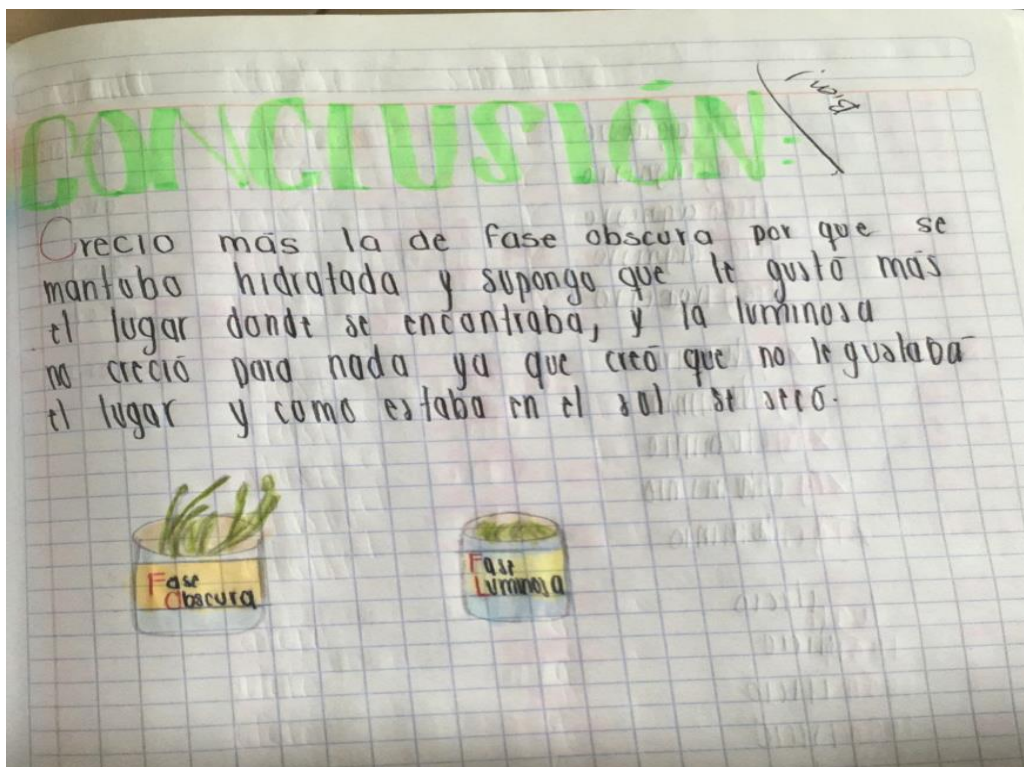 CONCLUSIÓN:
Crecio más la de fase obscura por que se
mantubo hidratada y supongo que le gustó más
el lugar donde se encontraba, y la luminosa
no creció para nada ya que creó que no le gustaba
el lugar y como estaba en el sol se secó.
Fase
Obscura
Fase
Luminosa